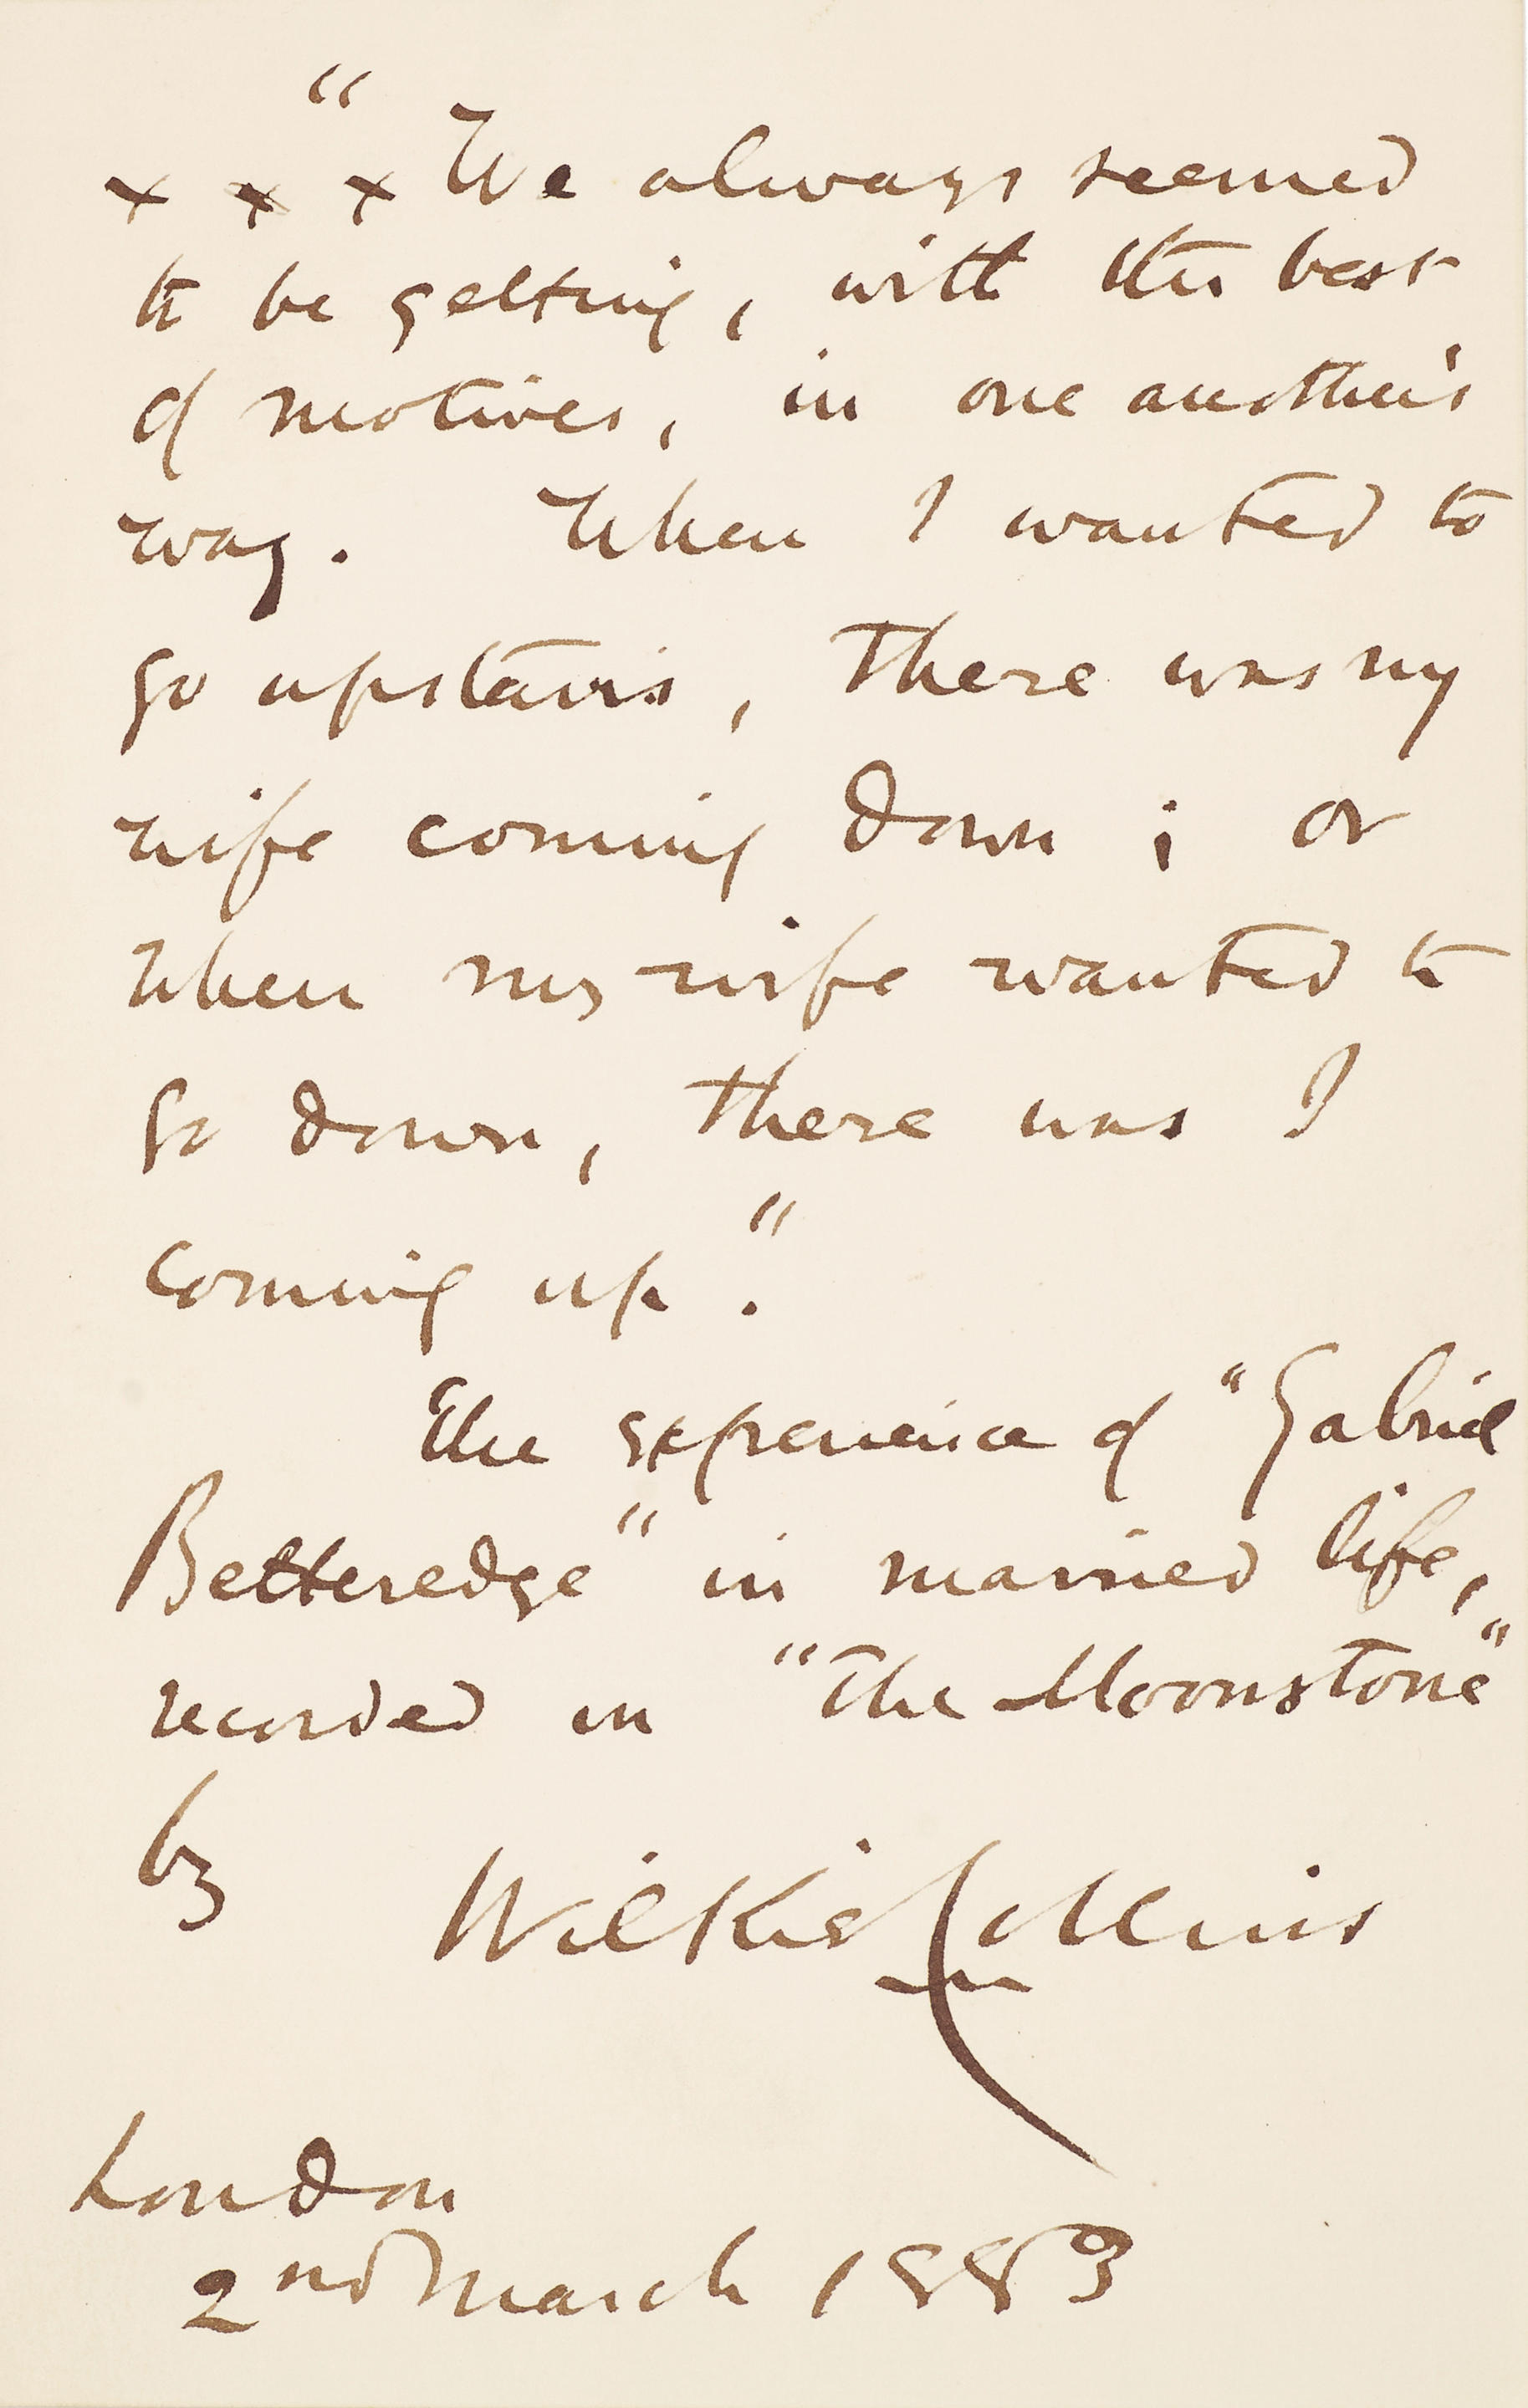 "
x x x We always seemed
to be getting, with the best
of motives, in one another's
way. When I wanted to
go upstairs, there was my
wife coming down; or
when my wife wanted to
go down, there was I
coming up."
The experience of "Gabriel
Betteredge" in married life,
recorded in "The Moonstone"
by Wilkie Collins
London
2nd March 1883